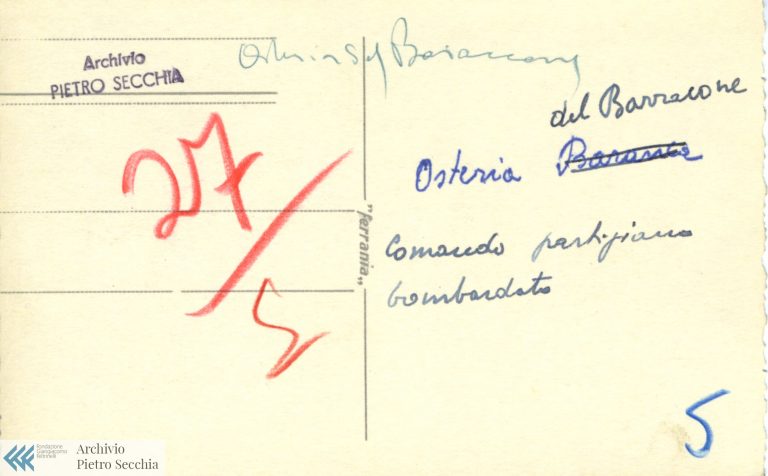 Archivio
PIETRO SECCHIA
Osteria del Baraccone
27/5
del Barracone
Osteria
"ferrania"
Comando partigiano
bombardato
5
Fondazione
Giangiacomo
Feltrinelli
Archivio
Pietro Secchia